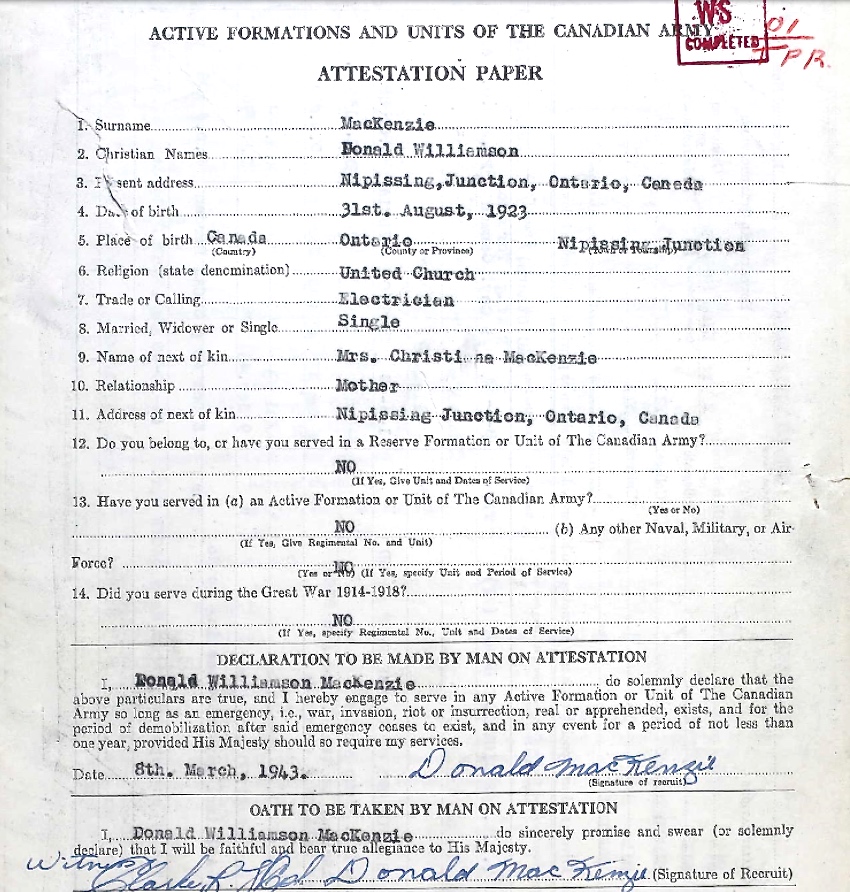 ACTIVE FORMATIONS AND UNITS OF THE CANADIAN ARMY
WS
COMPLETED
01
TPR.
ATTESTATION PAPER
1. Surname MacKenzie
2. Christian Names Donald Williamson
3. Present address Nipissing, Junction, Ontario, Canada
4. Date of birth 31st. August, 1923
5. Place of birth Canada Ontario Nipissing Junction
(Country) (County or Province) (Town or Township)
6. Religion (state denomination) United Church
7. Trade or Calling Electrician
8. Married, Widower or Single Single
9. Name of next of kin Mrs. Christine MacKenzie
10. Relationship Mother
11. Address of next of kin Nipissing Junction, Ontario, Canada
12. Do you belong to, or have you served in a Reserve Formation or Unit of The Canadian Army?
NO
(If Yes, Give Unit and Dates of Service)
13. Have you served in (a) an Active Formation or Unit of The Canadian Army?
(Yes or No)
NO (b) Any other Naval, Military, or Air
(If Yes, Give Regimental No. and Unit)
Force? NO
(Yes or No) (If Yes, specify Unit and Period of Service)
14. Did you serve during the Great War 1914-1918?
NO
(If Yes, specify Regimental No., Unit and Dates of Service)
DECLARATION TO BE MADE BY MAN ON ATTESTATION
I, Donald Williamson MacKenzie, do solemnly declare that the
above particulars are true, and I hereby engage to serve in any Active Formation or Unit of The Canadian
Army so long as an emergency, i.e., war, invasion, riot or insurrection, real or apprehended, exists, and for the
period of demobilization after said emergency ceases to exist, and in any event for a period of not less than
one year, provided His Majesty should so require my services.
Date 8th. March, 1943. Donald MacKenzie
(Signature of recruit)
OATH TO BE TAKEN BY MAN ON ATTESTATION
I, Donald Williamson MacKenzie do sincerely promise and swear (or solemnly
declare) that I will be faithful and bear true allegiance to His Majesty.
Witness
Clarke R. Donald MacKenzie (Signature of Recruit)